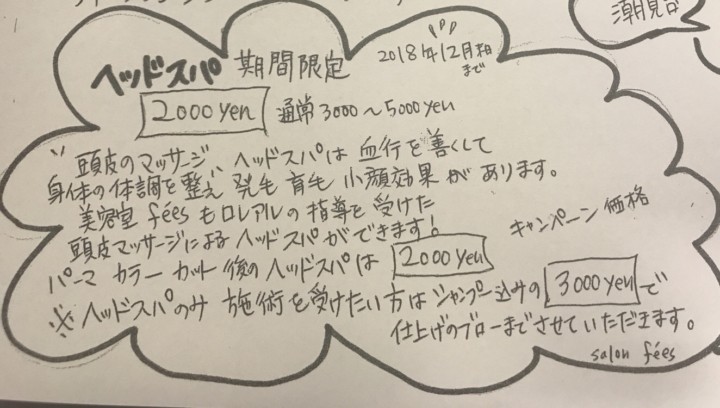 潮見
ヘッドスパ 期間限定 2018年12月末まで
2000yen 通常3000〜5000yen
頭皮のマッサージ ヘッドスパは血行を善くして
身体の体調を整え 発毛 育毛 小顔効果があります。
美容室 féesもロレアルの指導を受けた
頭皮マッサージによるヘッドスパができます! キャンペーン価格
パーマ カラー カット 後のヘッドスパは 2000yen
※ヘッドスパのみ 施術を受けたい方はシャンプー込みの 3000yen で
仕上げのブローまでさせていただきます。
salon fées